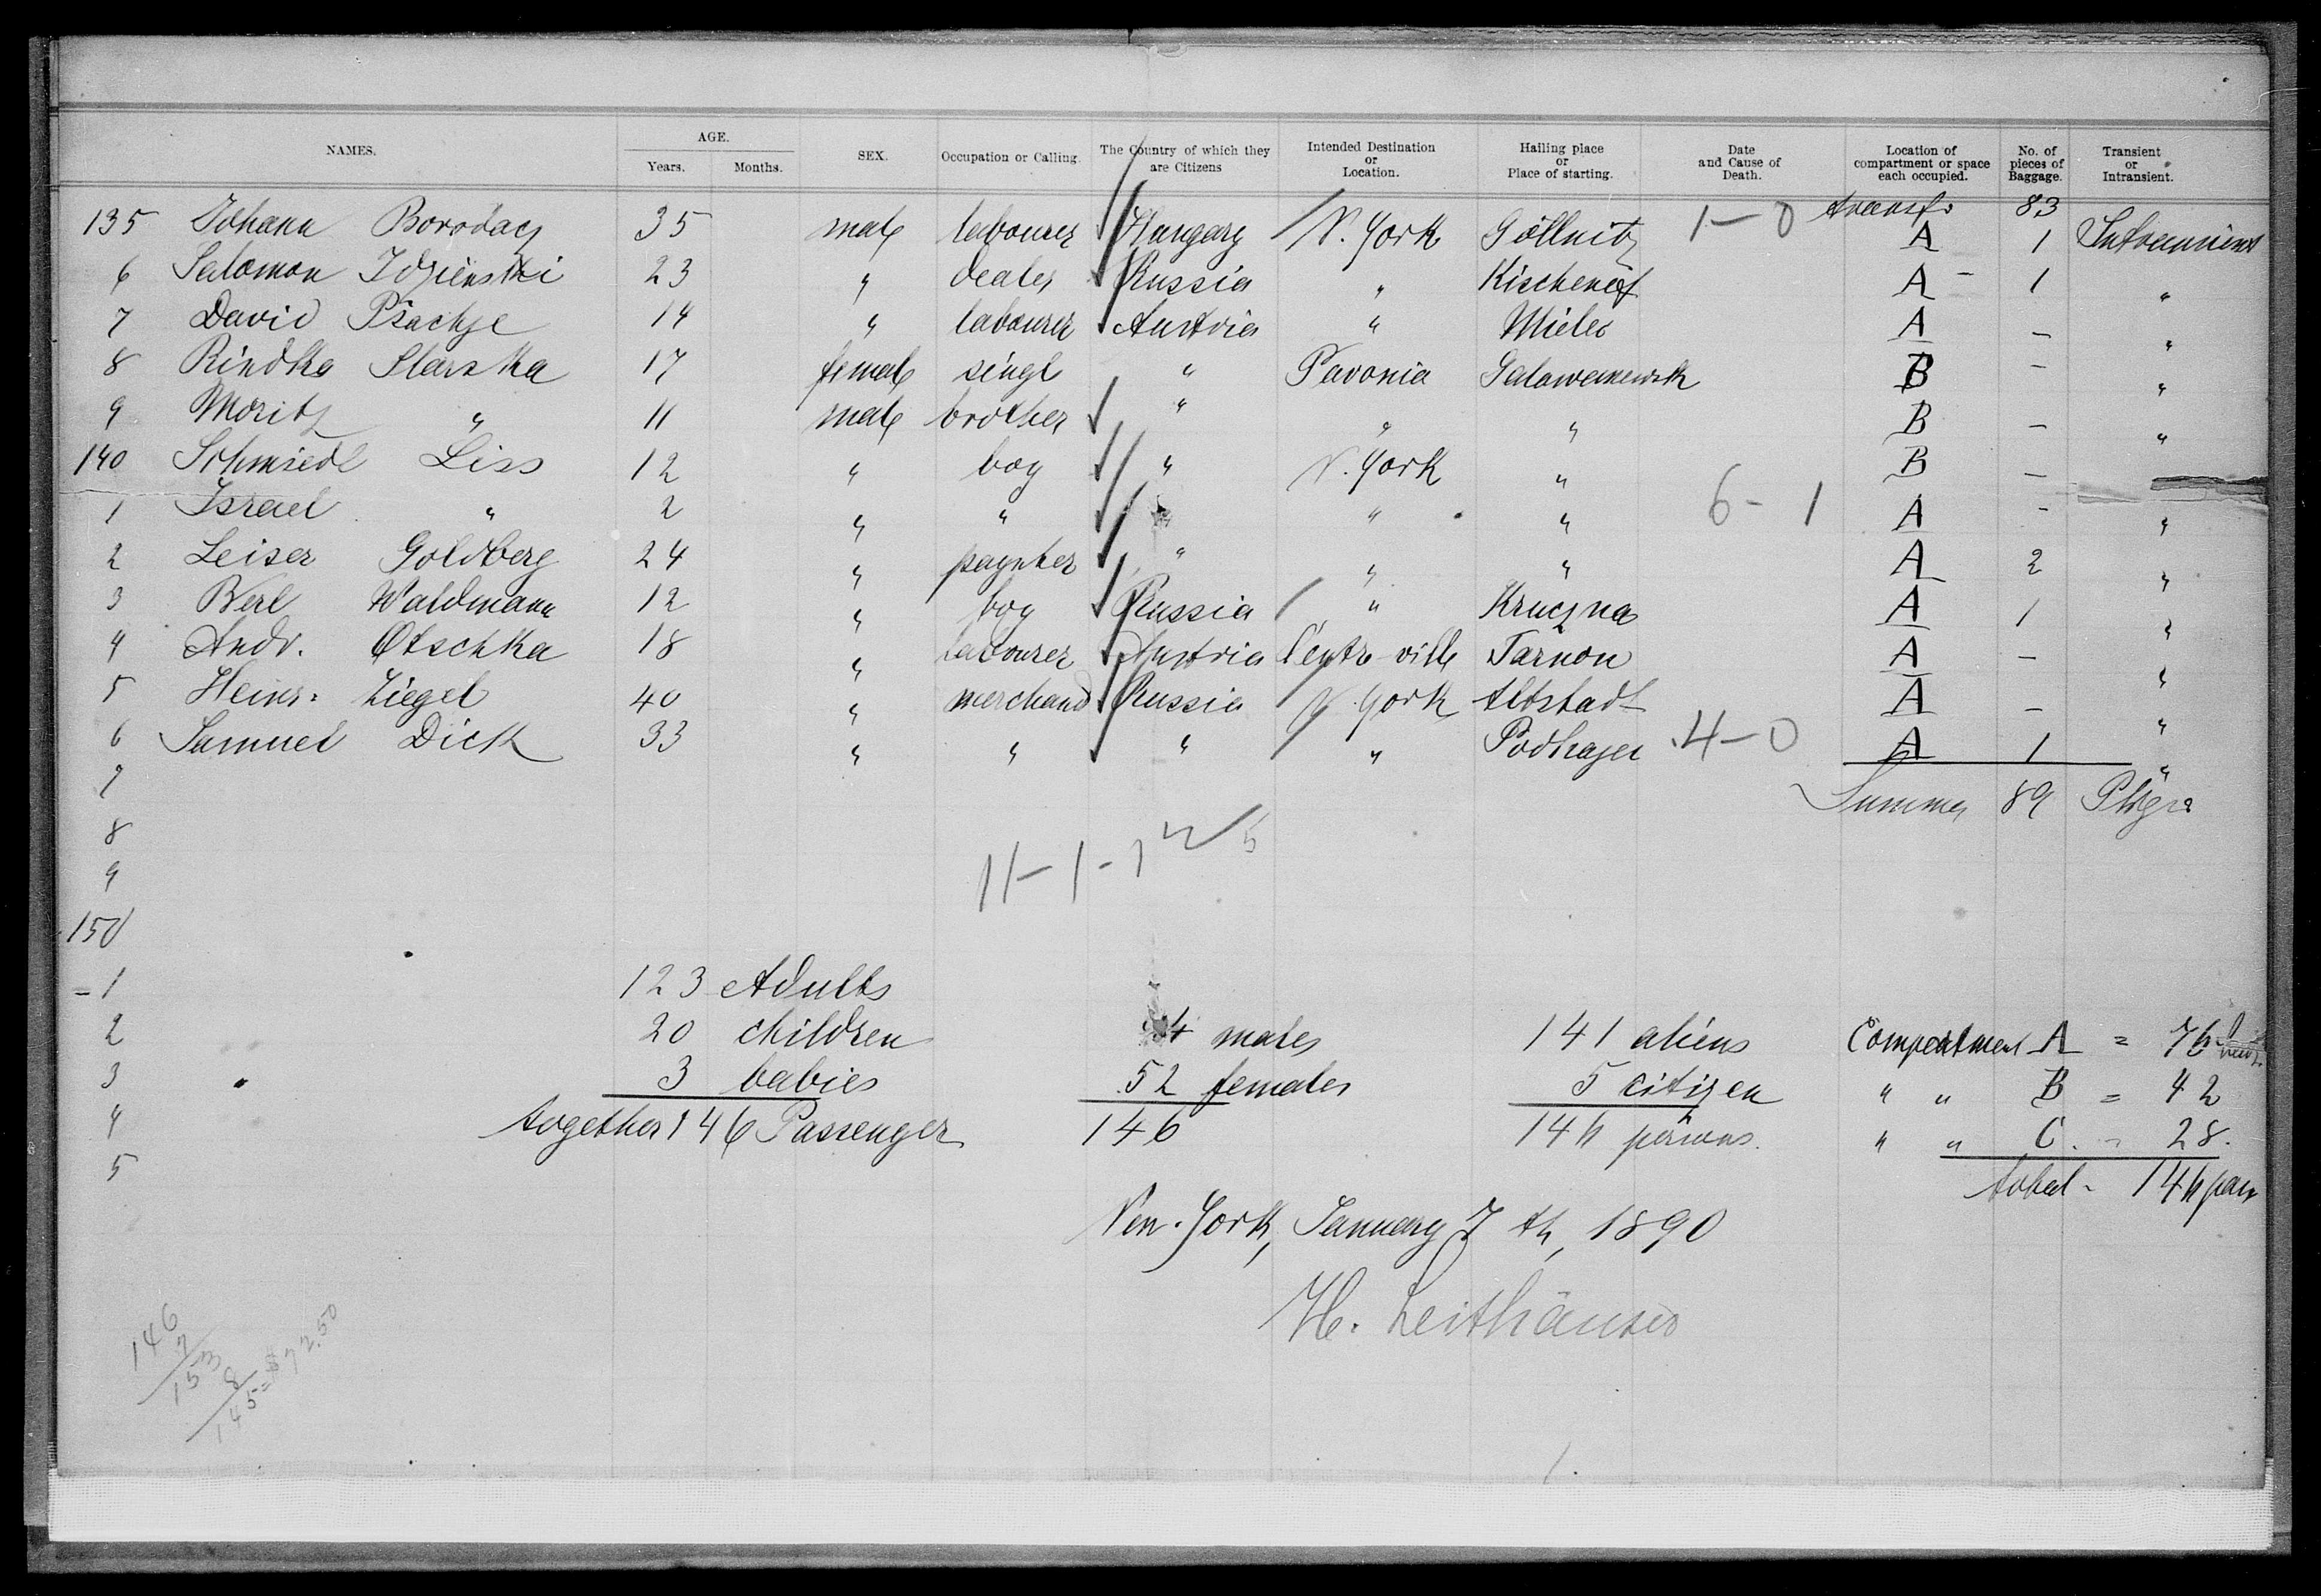 NAMES. AGE. Years. Months. SEX. Occupation or Calling. The Country of which they are Citizens Intended Destination or Location. Hailing place or Place of starting. Date and Cause of Death. Location of compartment or space each occupied. No. of pieces of Baggage. Transient or Intransient.
transf. 83
135 Johann Borodacz 35 male labourer Hungary N. York Göllnitz 1-0 A 1 Intransient
6 Salomon Idzienski 23 " dealer Russia " Kischenef A - 1 "
7 David 14 " labourer Austria " Mielec A - "
8 Rindka Slarska 17 female singl " Pavonia B - "
9 Moritz " 11 male brother " " " B - "
140 Schmiedl Liss 12 " boy " N. York " B - "
1 Israel " 2 " " " " " 6-1 A - "
2 Leiser Goldberg 24 " paynter " " " A 2 "
3 Berl Waldmann 12 " boy Russia " Kruczna A 1 "
4 Andr. Otschka 18 " labourer Austria Centre-ville Tarnow A - "
5 Heinr: Ziegel 40 " merchand Russia N. York Altstadt A - "
6 Samuel Dick 33 " " " " Podhajer 4-0 A 1 "
7 Summa 89 Pkgs
8
11-1-1
9
150
-1 123 Adults
2 20 children 94 males 141 aliens Compartment A = 76
3 3 babies 52 females 5 citizen " " B = 42
4 together 146 Passenger 146 146 persons. " " C. = 28.
5 total - 146 pass
New-York, January 7th, 1890
H. Leithäuser
146
7
153
8
145 = $72.50